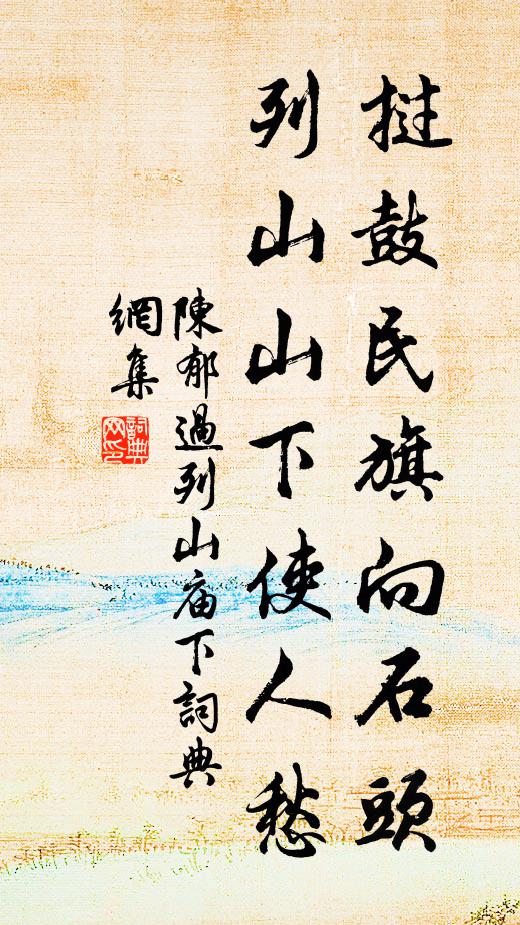 挝鼓民旗向石頭
列山山下使人愁
陳郁過列山庙下詞典
網集
詞典网印